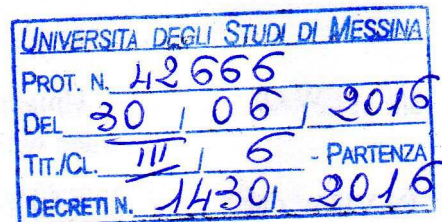 UNIVERSITA DEGLI STUDI DI MESSINA
PROT. N. 42666
DEL 30 / 06 / 2016
TIT./CL. III / 6 - PARTENZA
DECRETI N. 1430/ 2016